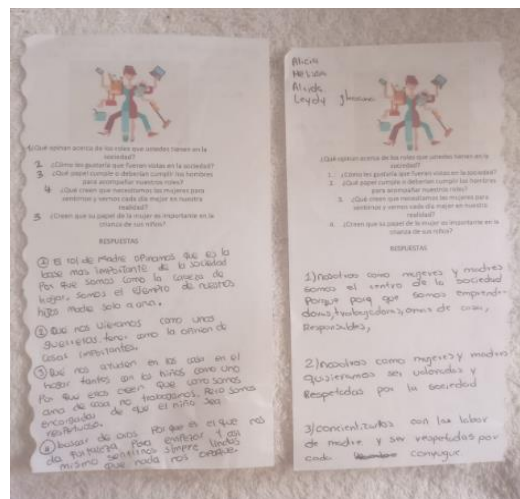 1¿Qué opinan acerca de los roles que ustedes tienen en la
sociedad?
2 ¿Cómo les gustaría que fueran vistas en la sociedad?
3 ¿Qué papel cumple o deberían cumplir los hombres
para acompañar nuestros roles?
4 ¿Qué creen que necesitamos las mujeres para
sentirnos y vernos cada día mejor en nuestra
realidad?
5 ¿Creen que su papel de la mujer es importante en la
crianza de sus niños?
RESPUESTAS
① el rol de Madre opinamos que es la
base mas importante de la sociedad
Por que somos como la cabeza de
hogar. somos el ejemplo de nuestros
hijos madre sola o ama.
② Que nos vieramos como unas
guerreras. tener como la opinion de
cosas importantes.
③ Que nos ayuden en las cosa en el
hogar tantos con los niños como uno
Por que ellos creen que como somos
ama de casa no trabajamos. Pero somos
encargadas de que el niño sea
respetuoso.
④ buscar de dios Porque es el que nos
da fortaleza Para empezar Y asi
mismo sentirnos siempre lindas
que nada nos opaque.
Alicia
Nelson
Leydy
¿Qué opinan acerca de los roles que ustedes tienen en la
sociedad?
1. ¿Cómo les gustaría que fueran vistas en la sociedad?
2. ¿Qué papel cumple o deberían cumplir los hombres
para acompañar nuestros roles?
3. ¿Qué creen que necesitamos las mujeres para
sentirnos y vernos cada día mejor en nuestra
realidad?
4. ¿Creen que su papel de la mujer es importante en la
crianza de sus niños?
RESPUESTAS
1) nosotros como mugeres y madres
somos el centro de la sociedad
Porque porq que somos emprende-
doras, trabajadoras, amas de casa,
Responsables,
2) nosotros como mugeres y madres
quisieramos ser valoradas y
Respetadas por la sociedad
3/ concientizarlos con las labor
de madre y ser respetadas por
cada conyugue